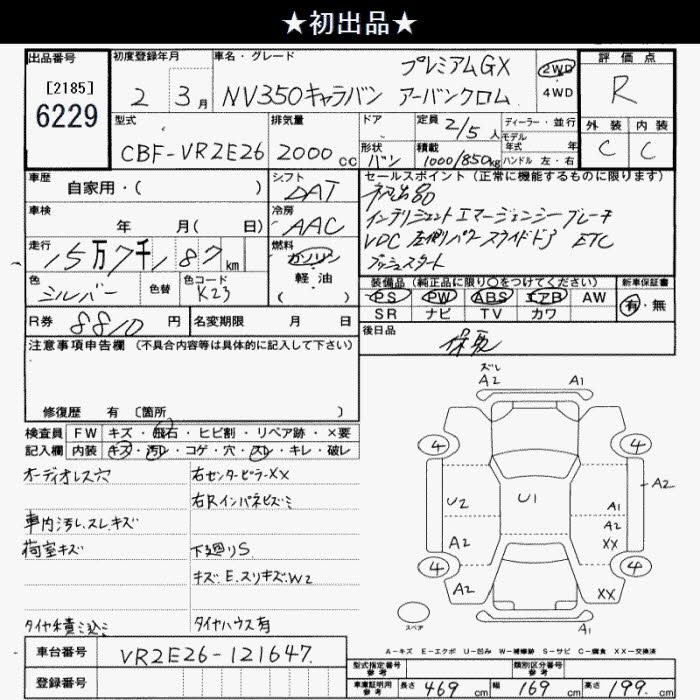 ★初出品★
出品番号
[2185]
6229
初度登録年月
2 3月
車名・グレード
プレミアムGX
NV350キャラバン アーバンクロム
2WD
4WD
評価点
R
型式
CBF-VR2E26
排気量
2000cc
ドア
形状
バン
定員 2/5人
積載 1000/850kg
ディーラー・並行
モデル年式 年
ハンドル 左・右
外装 内装
C C
車歴
自家用・( )
シフト
DAT
車検
年 月( 日)
冷房
AAC
走行
15万7千187km
燃料
ガソリン
軽油
( )
色
シルバー
色替
色コード
K23
R券 8810円
名変期限 月 日
セールスポイント(正常に機能するものに限ります)
初出品
インテリジェントエマージェンシーブレーキ
VDC 左側パワースライドドア ETC
プッシュスタート
装備品(純正品に限り○をつけてください)
PS PW ABS エアB AW
SR ナビ TV カワ
新車保証書
有・無
後日品
保, 取
注意事項申告欄(不具合内容等は具体的に記入して下さい)
修復歴 有 〔箇所 〕
検査員記入欄
FW キズ・飛石・ヒビ割・リペア跡・×要
内装 キズ・汚レ・コゲ・穴・スレ・キレ・破レ
オーディオレス穴
車内汚レ、スレ、キズ
荷室キズ
タイヤ積ミ込ミ
右センターピラーXX
右Rインパネヒズミ
下廻りS
キズ、E、スリキズ、W2
タイヤハウス有
ズレ
A2 A1
4 4
A2
U2 U1 A1
A2
A2 XX
4 4
A2 XX
スペア
A1
A-キズ E-エクボ U-凹み W-補修跡 S-サビ C-腐食 XX-交換済
車台番号 VR2E26-121647
登録番号
型式指定番号
参考
類別区分番号
参考
車庫証明用
参考
長さ 469cm 幅 169cm 高さ 199cm